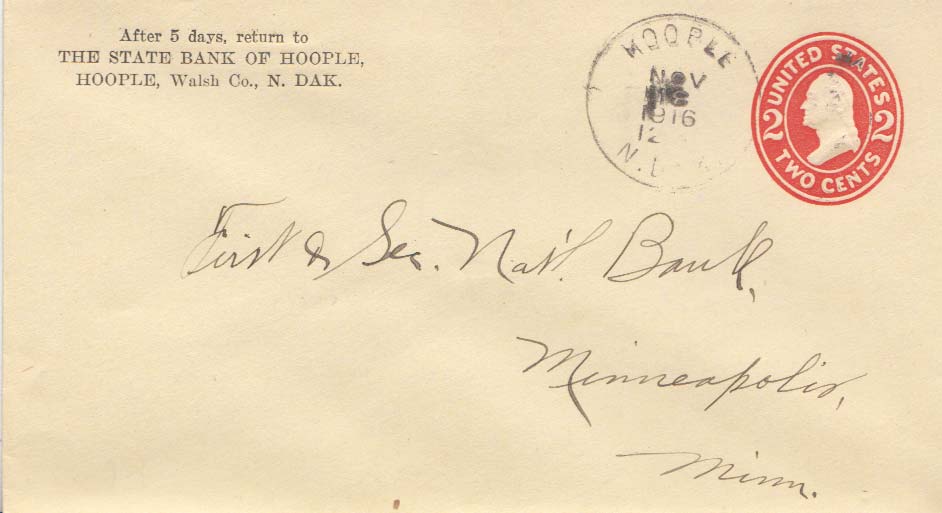 After 5 days, return to
THE STATE BANK OF HOOPLE,
HOOPLE, Walsh Co., N. DAK.
HOOPLE
NOV
1916
12
N. D
UNITED STATES
2 2
TWO CENTS
First & Sec. Nat'l. Bank,
Minneapolis,
Minn.